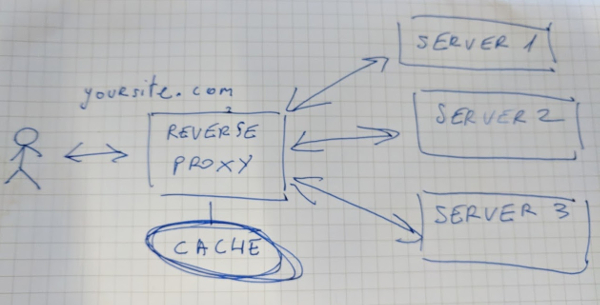 yoursite.com
REVERSE
PROXY
CACHE
SERVER 1
SERVER 2
SERVER 3